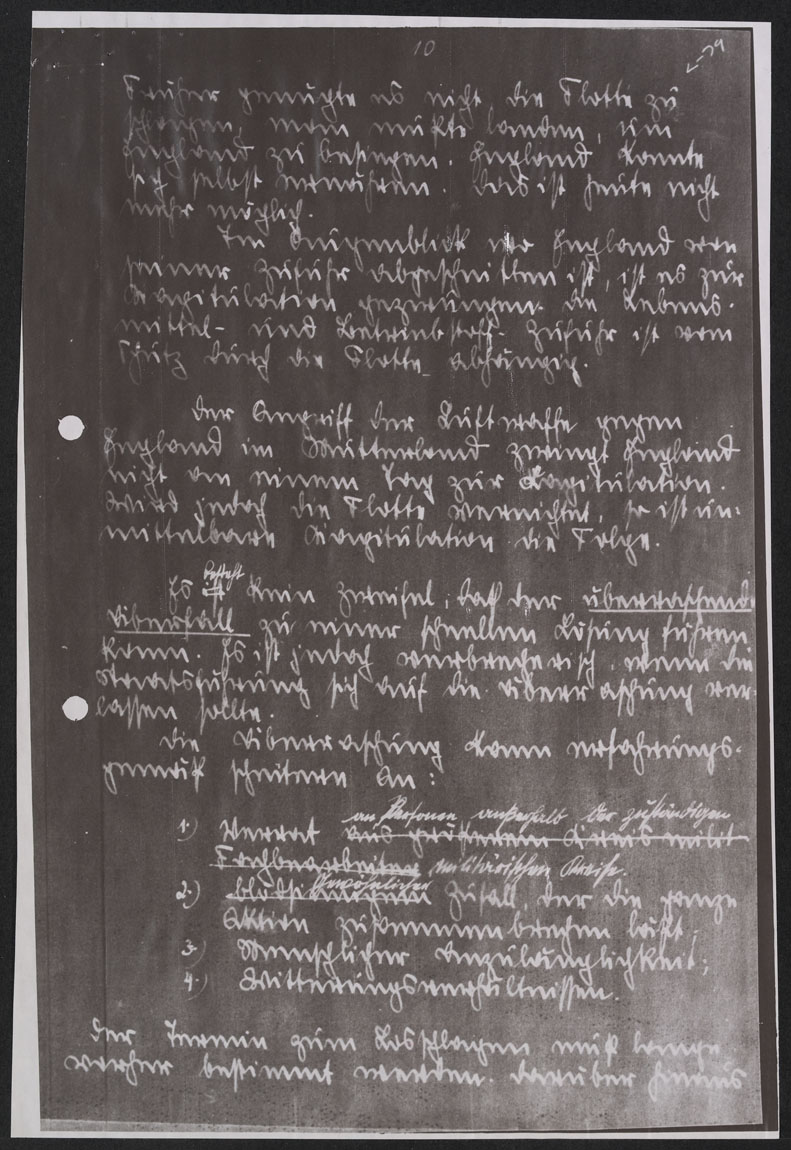 10
L-79
Früher genügte es nicht, die Flotte zu
schlagen, man mußte landen, um
England zu besiegen. England konnte
sich selbst ernähren. Das ist heute nicht
mehr möglich.
Im Augenblick wo England von
seiner Zufuhr abgeschnitten ist, ist es zur
Kapitulation gezwungen. Die Lebens-
mittel- und Betriebstoff-Zufuhr ist vom
Schutz durch die Flotte abhängig.
Der Angriff der Luftwaffe gegen
England im Mutterland zwingt England
nicht an einem Tag zur Kapitulation.
Wird jedoch die Flotte vernichtet, so ist un-
mittelbare Kapitulation die Folge.
besteht
Es ist kein Zweifel, daß der überraschende
Überfall zu einer schnellen Lösung führen
kann. Es ist jedoch verbrecherisch, wenn die
Staatsführung sich auf die Überraschung ver-
lassen sollte.
Die Überraschung kann erfahrungs-
gemäß scheitern an:
an Personen außerhalb der zuständigen
1.) Verrat aus größerem Kreis milit
Fachbearbeiter militärischen Kreise.
gewöhnlicher
2.) Zufall, der die ganze
Aktion zusammenbrechen läßt;
3.) Menschlicher Unzulänglichkeit;
4.) Witterungsverhältnissen.
Der Termin zum Losschlagen muß lange
vorher bestimmt werden. Darüber hinaus